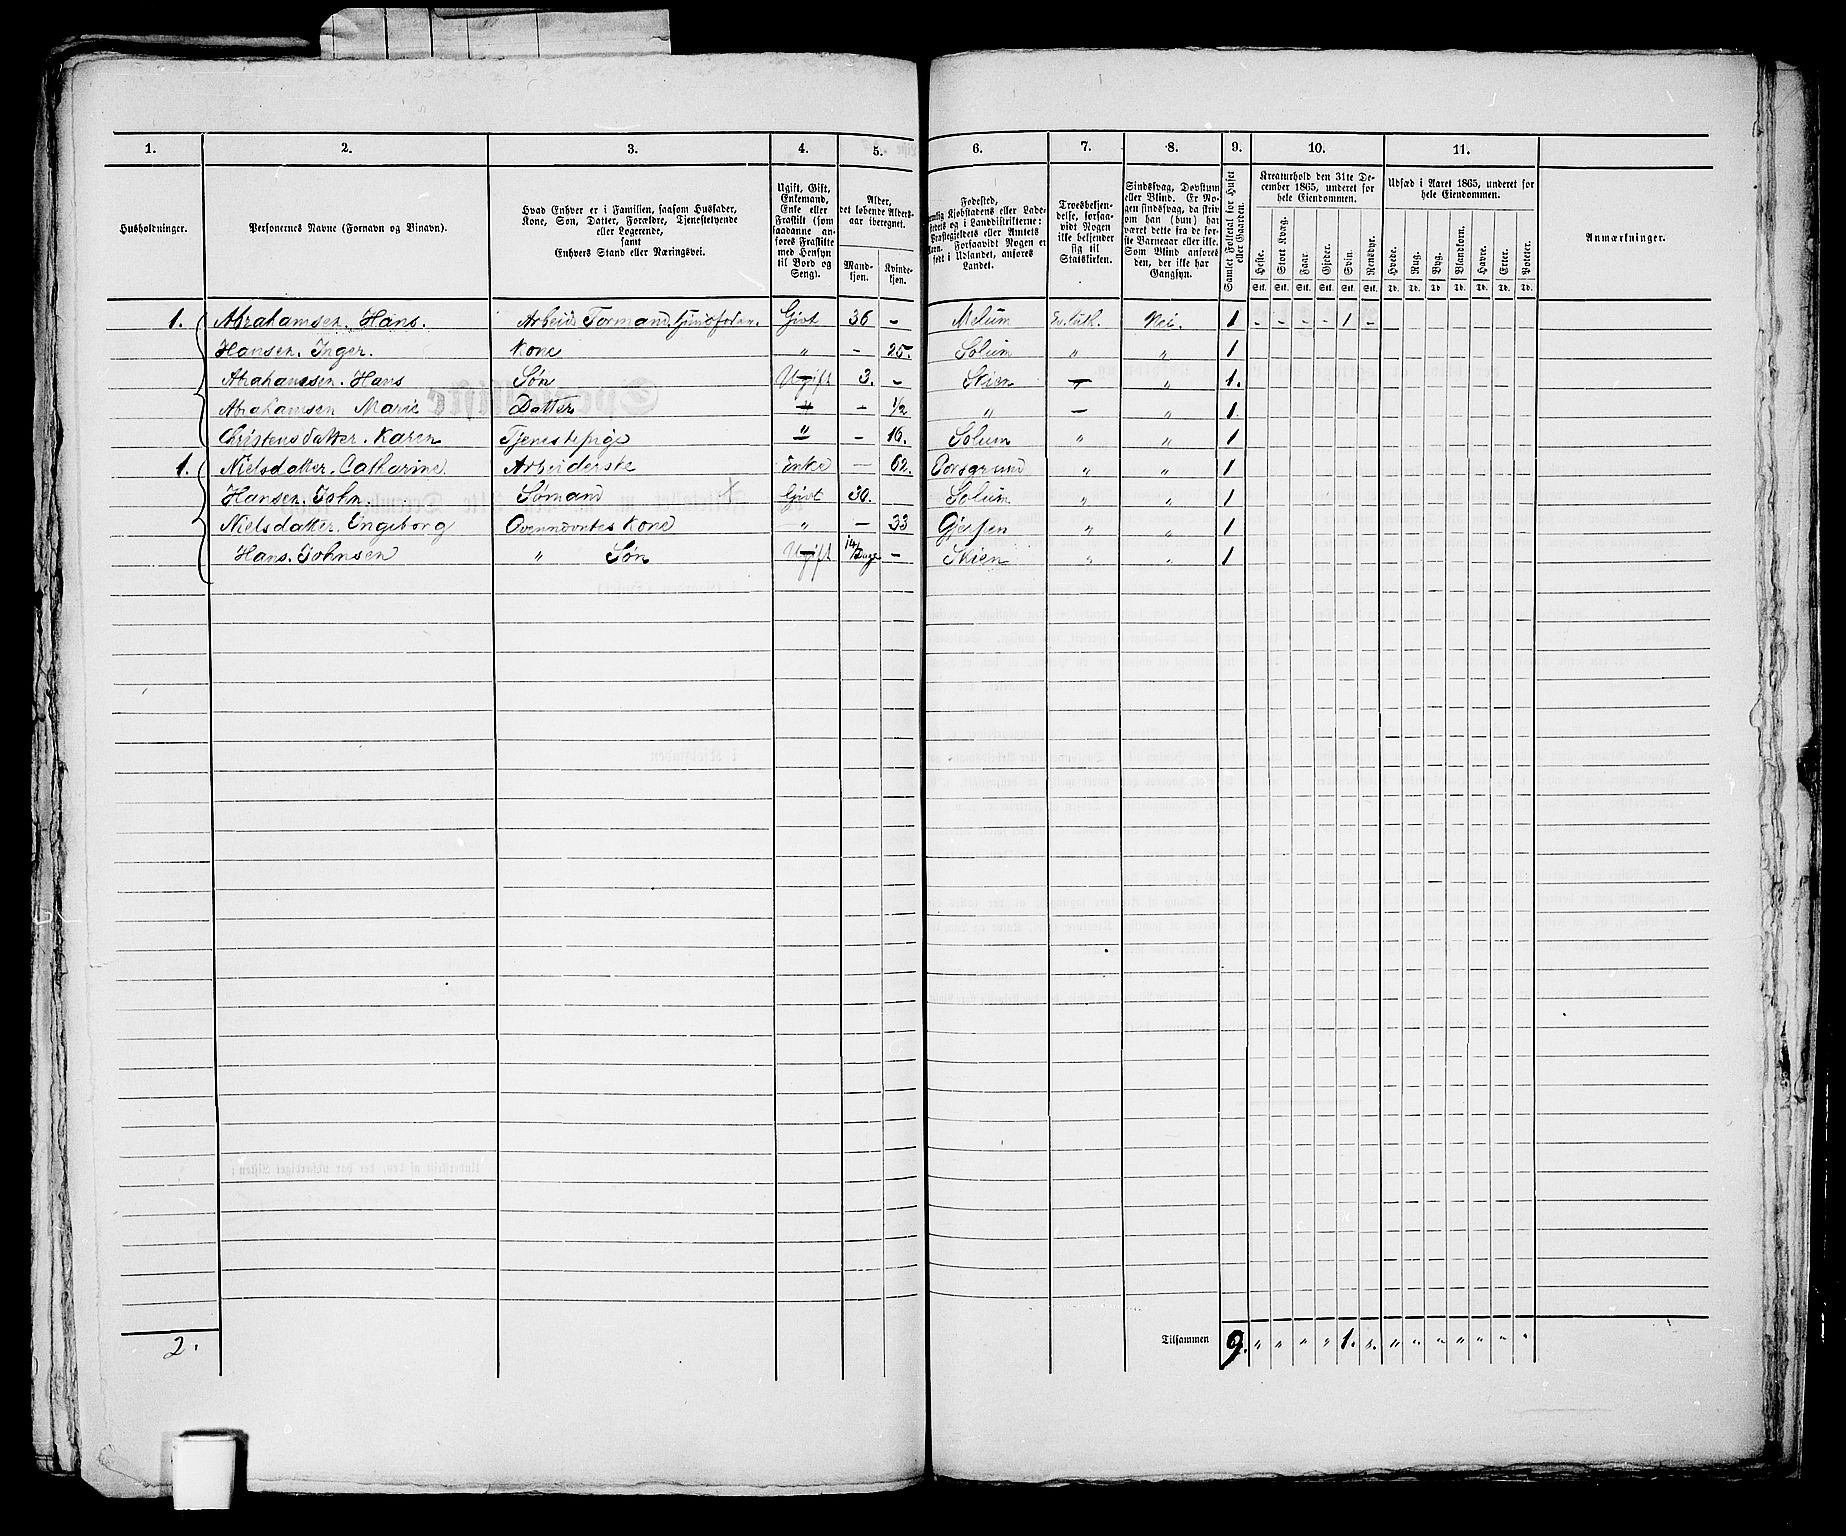 1. 2. 3. 4. 5. 6. 7. 8. 9. 10. 11.
Husholdninger.
Personernes Navne (Fornavn og Binavn).
Hvad Enhver er i Familien, saasom Husfader,
Kone, Søn, Datter, Forældre, Tjenestetyende
eller Logerende,
samt
Enhvers Stand eller Næringsvei.
Ugift, Gift,
Enkemand,
Enke eller
Fraskilt (som
saadanne an-
føres Fraskilte
med Hensyn
til Bord og
Seng).
Alder,
det løbende Alders-
aar iberegnet.
Mand-
kjøn.
Kvinde-
kjøn.
Fødested,
nemlig Kjøbstadens eller Lade-
stedets og i Landdistrikterne:
Præstegjeldets eller Amtets
Navn. Forsaavidt Nogen er
født i Udlandet, anføres
Landet.
Troesbekjen-
delse, forsaa-
vidt Nogen
ikke bekjender
sig til
Statskirken.
Sindssvag, Døvstum
eller Blind. Er No-
gen sindssvag, da skriv
om han (hun) har
været dette fra de før-
ste Barneaar eller ikke.
Som Blind anføres
den, der ikke har
Gangsyn.
Samlet Folketal for Huset
eller Gaarden.
Kreaturhold den 31te De-
cember 1865, underet for
hele Eiendommen.
Heste. Stort Kvæg. Faar. Gjeder. Svin. Rensdyr.
Stk. Stk. Stk. Stk. Stk. Stk.
Udsæd i Aaret 1865, underet for
hele Eiendommen.
Hvede. Rug. Byg. Blandkorn. Havre. Erter. Poteter.
Td. Td. Td. Td. Td. Td. Td.
Anmærkninger.
1. Abrahamsen. Hans. Arbeid Formand Givt 36 - Melum Ev. Luth. Nei. 1 - - - - 1 -
Hansen. Inger. Kone " - 25. Solum " " 1
Abrahamsen. Hans Søn Ugift 3. - Skien " 1.
Abrahamsen Marie Datter " - 1/2 " - " 1.
Christensdatter. Karen Tjenestepige " - 16. Solum " " 1
1. Nielsdatter. Catharine. Arbeiderske Enke - 62. Porsgrund " " 1
Hansen. John. Sømand Givt 30. Solum " " 1
Nielsdatter. Engeborg Ovennævntes Kone " - 33 Gjerpen " " 1
Hans. Johnsen " Søn Ugift 14 Dage - Skien " " 1
2. Tilsammen 9. " " " " 1. " " " " " " "